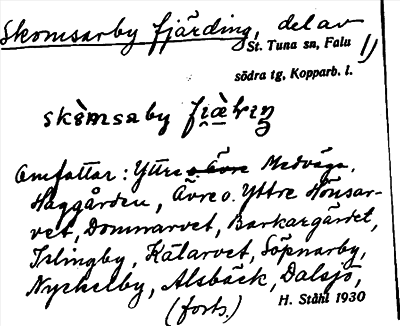 Skomsarby fjärding, del av
St. Tuna sn, Falu 1)
södra tg, Kopparb. l.
Omfattar: Yttre o. Övre Medväga,
Haggården, Övre o. Yttre Hönsar-
vet, Domnarvet, Barkargärdet,
Islingby, Kälarvet, Söpnarby,
Nyckelby, Alsbäck, Dalsjö,
(forts.) H. Ståhl 1930